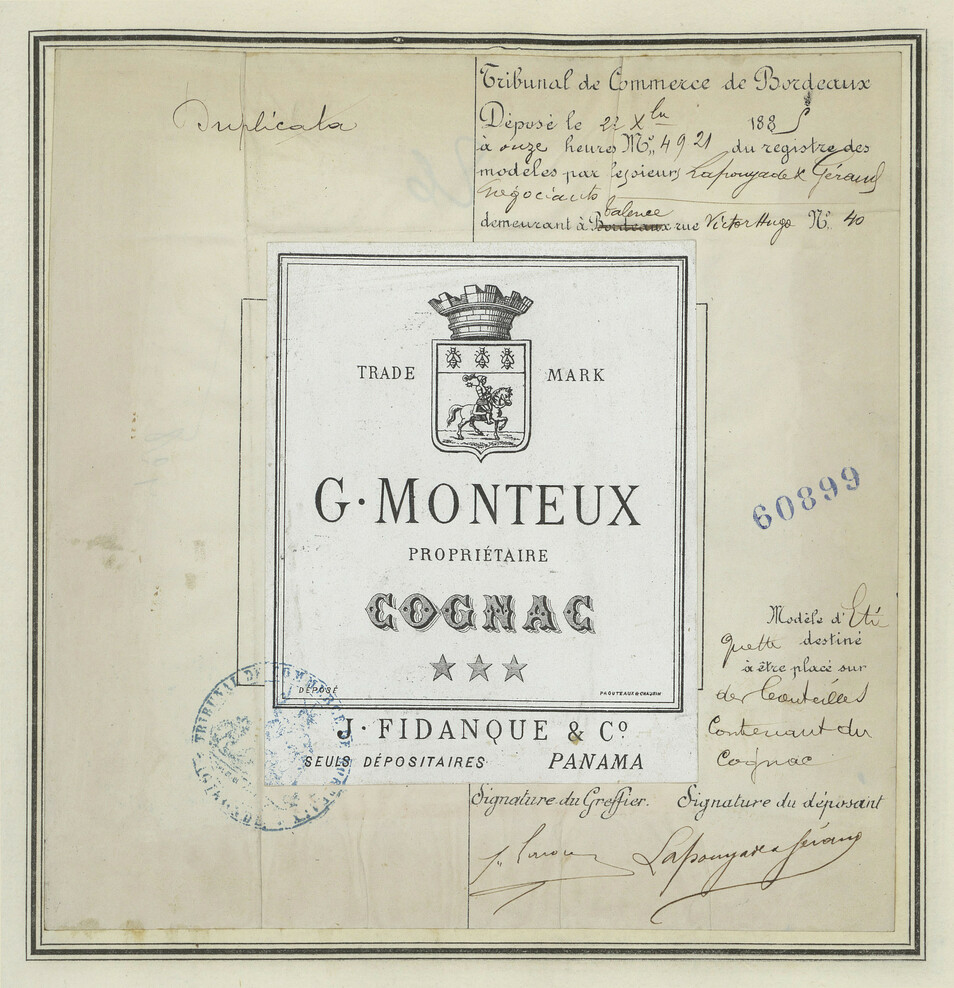 Duplicata
Tribunal de Commerce de Bordeaux
Déposé le 22 Xbre 1885
à onze heures Mo., 4921 du registre des
modèles par les sieurs Lapouyade & Géraud
négociants
Talence
demeurant à Bordeaux rue Victor Hugo No. 40
TRADE MARK
G·MONTEUX
PROPRIÉTAIRE
COGNAC
DÉPOSÉ
J·FIDANQUE & Co.
SEULS DÉPOSITAIRES PANAMA
60899
Modèle d'Eti
quette destiné
à être placé sur
des bouteilles
contenant du
Cognac
TRIBUNAL DE COMMERCE DE
Signature du Greffier. Signature du déposant
Lapouyade & Géraud